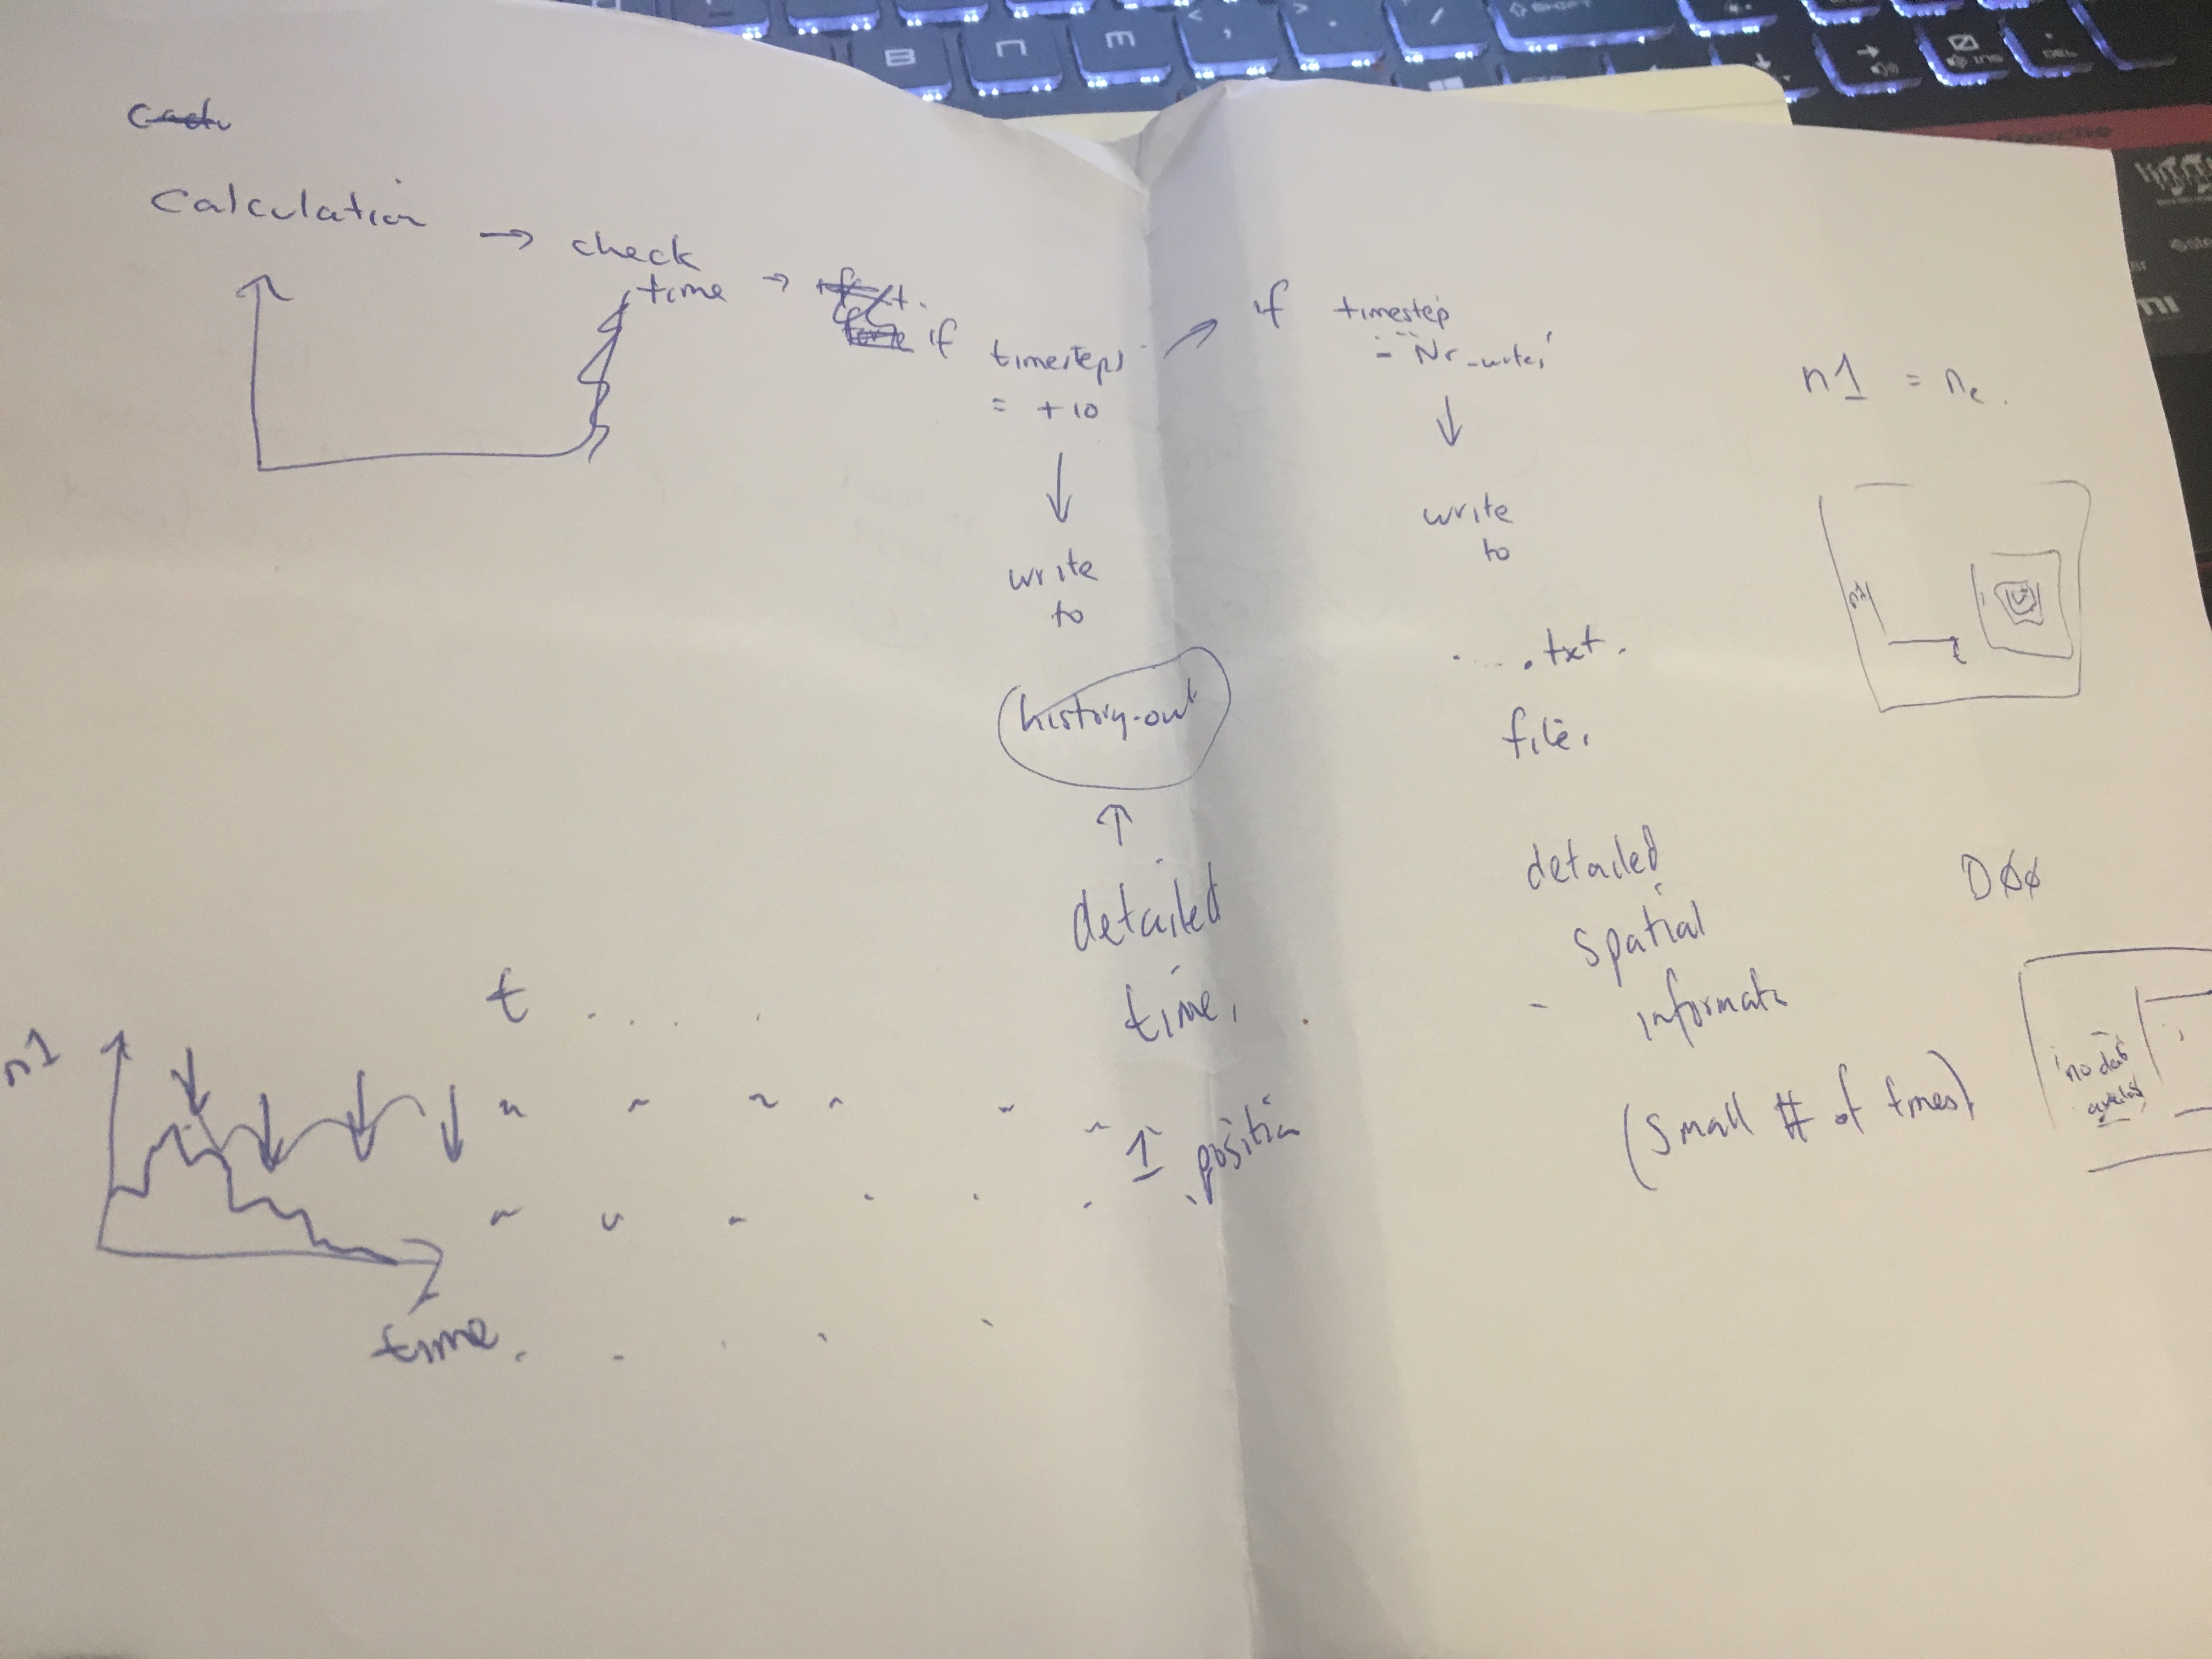 Calculation → check
time → if timesteps
= + 10
↓
write
to
history-out
↑
detailed
time,
1 position
↗ if timestep
= Nr_writes
↓
write
to
.....txt.
file.
detailed
spatial
-
(small # of times)
n1 = ne.
n1
t
DØØ
no data
t . . . .
n1
time.
B N M < , > . /
SHIFT
INS
DEL